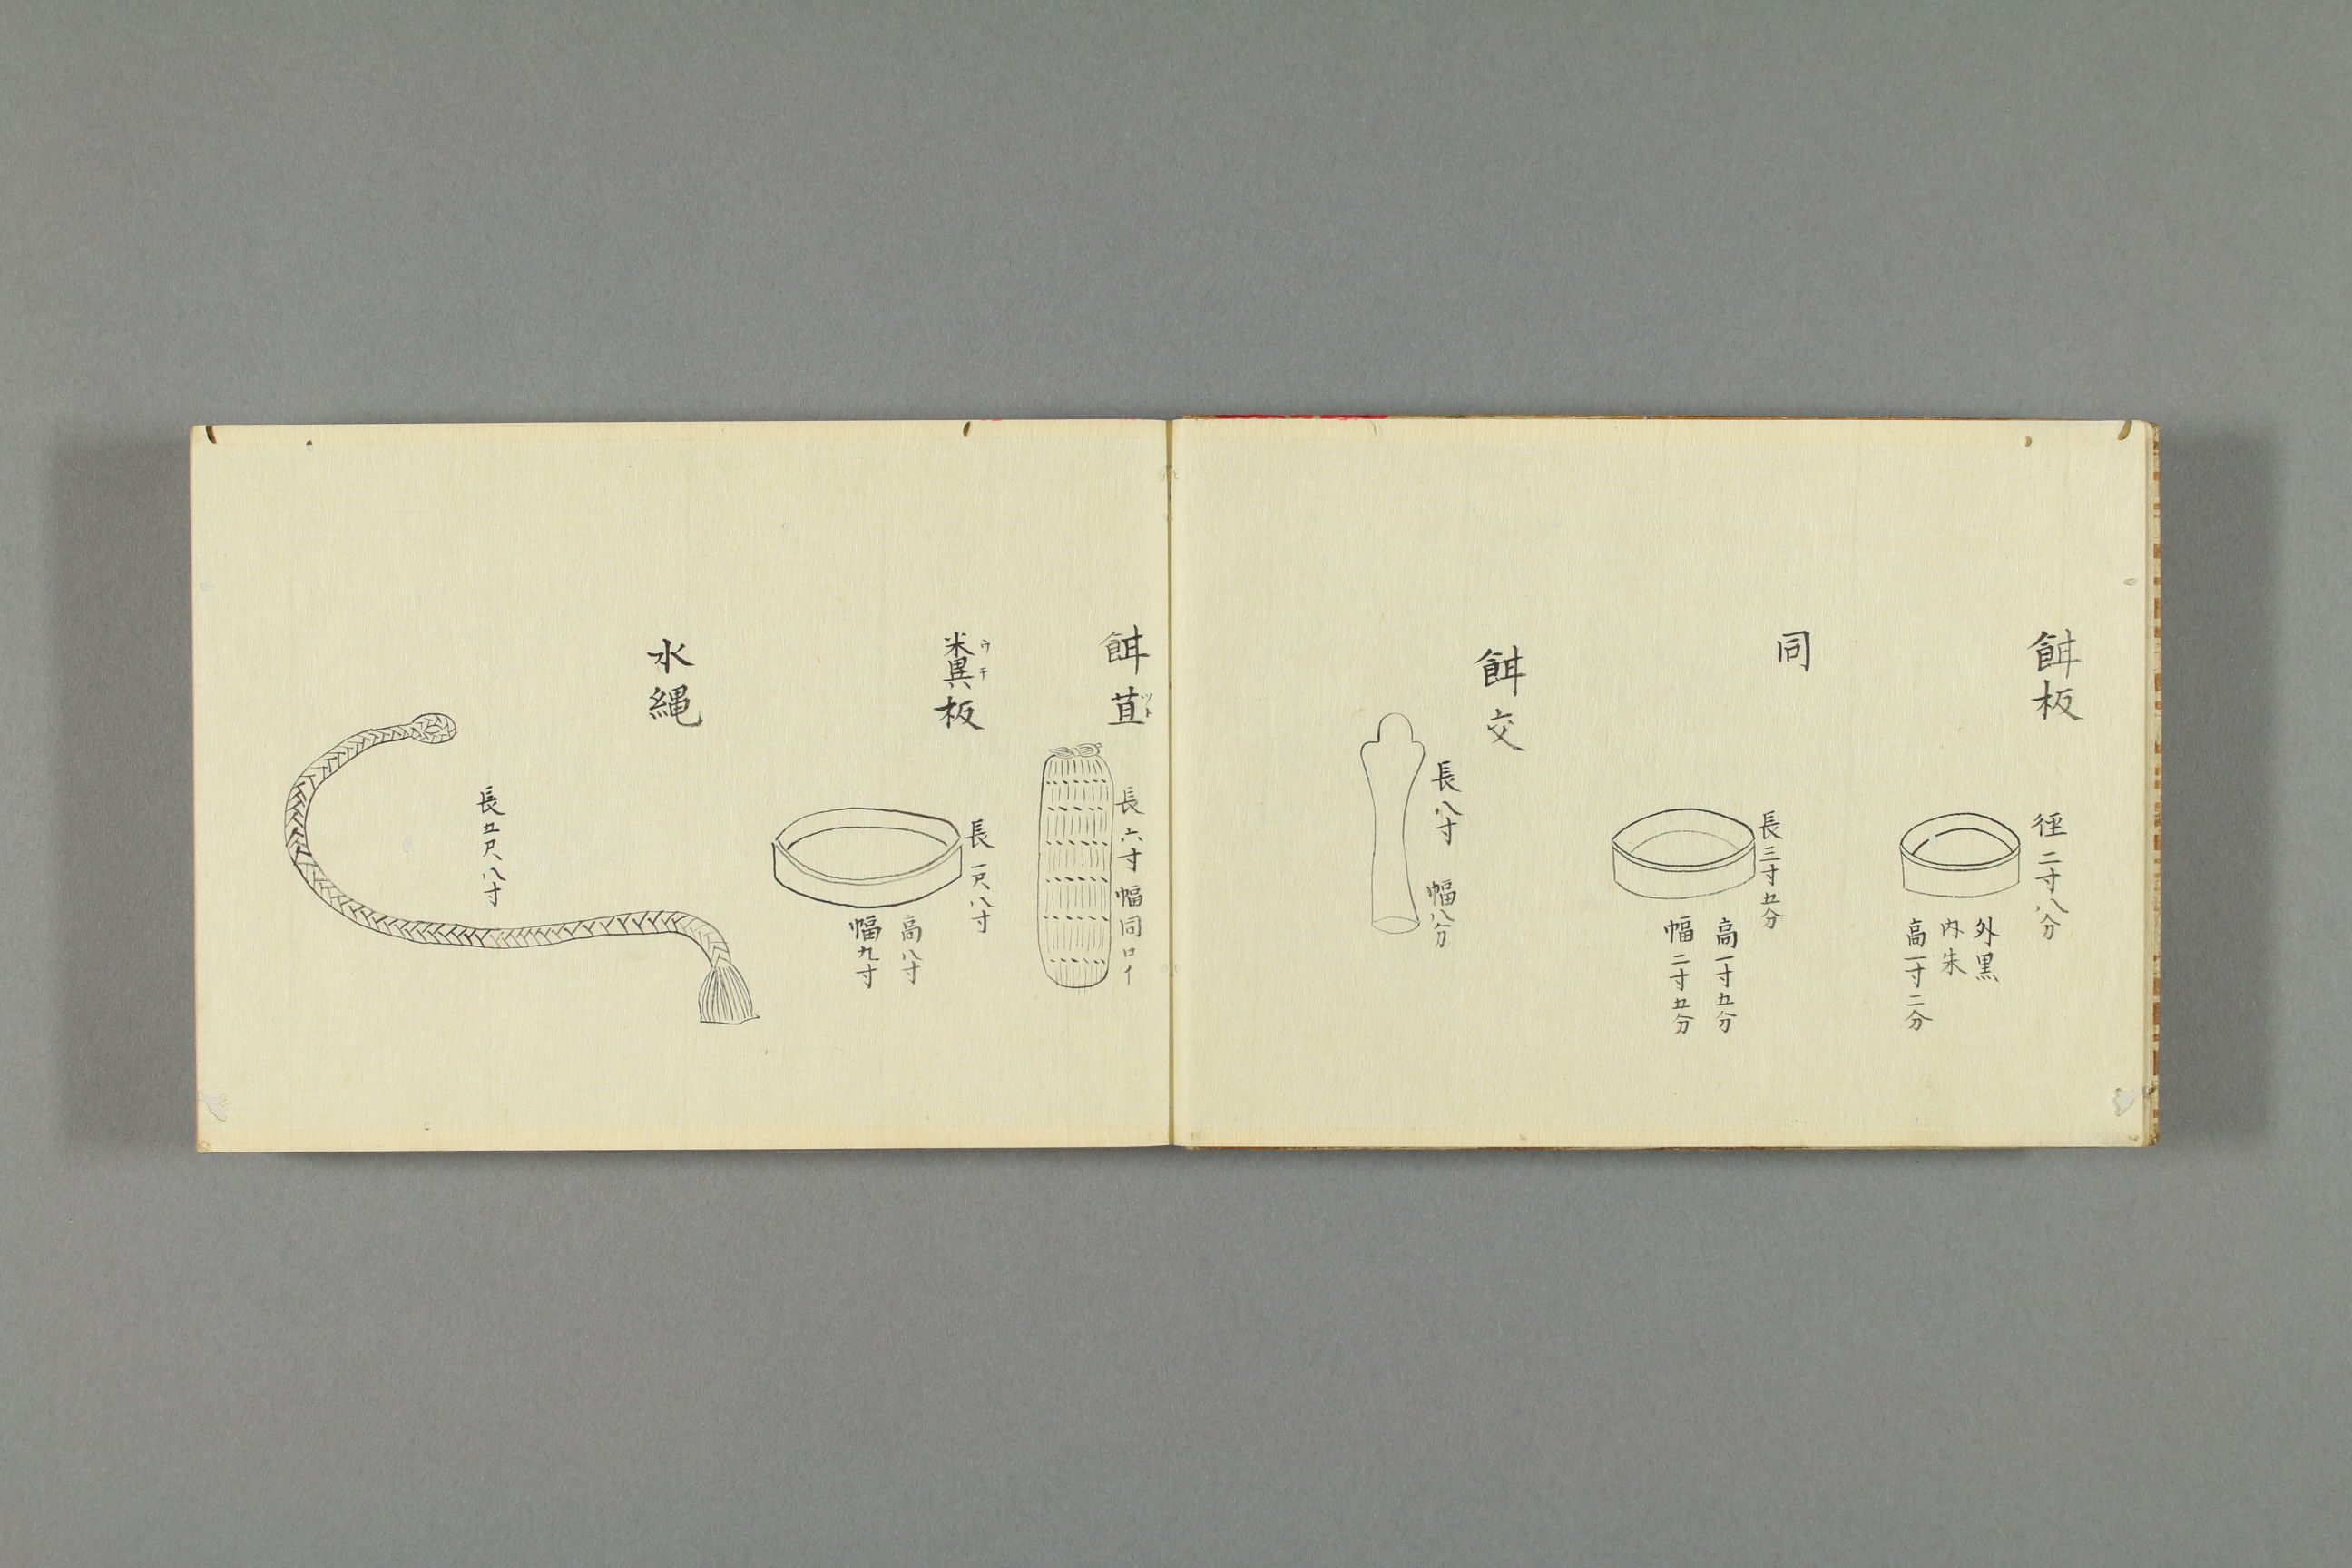 餌板
徑二寸八分
外黒
内朱
高一寸二分
同
長三寸五分
高一寸五分
幅二寸五分
餌交
長八寸 幅八分
餌苴
ツト
長六寸幅同
糞板
長一尺八寸
高八寸
幅九寸
水縄
長五尺八寸